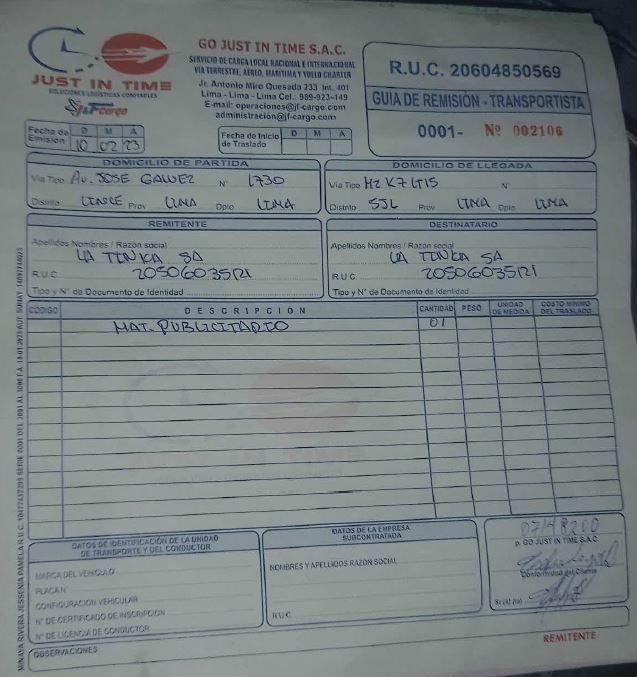 JUST IN TIME
SOLUCIONES LOGISTICAS CONFIABLES
J&F Cargo
GO JUST IN TIME S.A.C.
SERVICIO DE CARGA LOCAL NACIONAL E INTERNACIONAL
VIA TERRESTRE, AEREO, MARITIMA Y VUELO CHARTER
Jr. Antonio Miro Quesada 233 Int. 401
Lima - Lima - Lima Cel.: 989-923-149
E-mail: operaciones@jf-cargo.com
administracion@jf-cargo.com
R.U.C. 20604850569
GUIA DE REMISIÓN - TRANSPORTISTA
0001- Nº 002106
Fecha de Emisión D M A
10 02 23
Fecha de Inicio de Traslado D M A
DOMICILIO DE PARTIDA
Vía Tipo AV. JOSE GALVEZ N° 1730
Distrito LINCE Prov LIMA Dpto LIMA
DOMICILIO DE LLEGADA
Vía Tipo MZ K7 LT15 N°
Distrito SJL Prov LIMA Dpto LIMA
REMITENTE
Apellidos Nombres / Razón social
LA TINKA SA
R.U.C 20506035121
Tipo y N° de Documento de Identidad
DESTINATARIO
Apellidos Nombres / Razón social
LA TINKA SA
R.U.C 20506035121
Tipo y N° de Documento de Identidad
CODIGO DESCRIPCION CANTIDAD PESO UNIDAD DE MEDIDA COSTO MINIMO DEL TRASLADO
MAT. PUBLICITARIO 01
JUST IN TIME
DATOS DE IDENTIFICACIÓN DE LA UNIDAD
DE TRANSPORTE Y DEL CONDUCTOR
MARCA DEL VEHICULO
PLACA N°
CONFIGURACIÓN VEHICULAR
N° DE CERTIFICADO DE INSCRIPCIÓN
N° DE LICENCIA DE CONDUCTOR
DATOS DE LA EMPRESA
SUBCONTRATADA
NOMBRES Y APELLIDOS RAZON SOCIAL
R.U.C
p. GO JUST IN TIME S.A.C.
Conformidad del Cliente
Sr.(a) (ta)
OBSERVACIONES:
REMITENTE